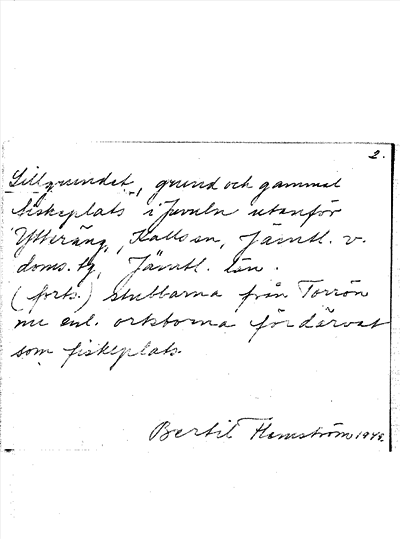 2.
Sillgrundet, grund och gammal
fiskeplats i Juveln utanför
Ytteräng, Kallsen, Jämtl. v.
doms. tg, Jämtl. län.
(forts.) stubbarna från Torrön
nu enl. ortsborna fördärvat
som fiskeplats.
Bertil Flemström 1948.